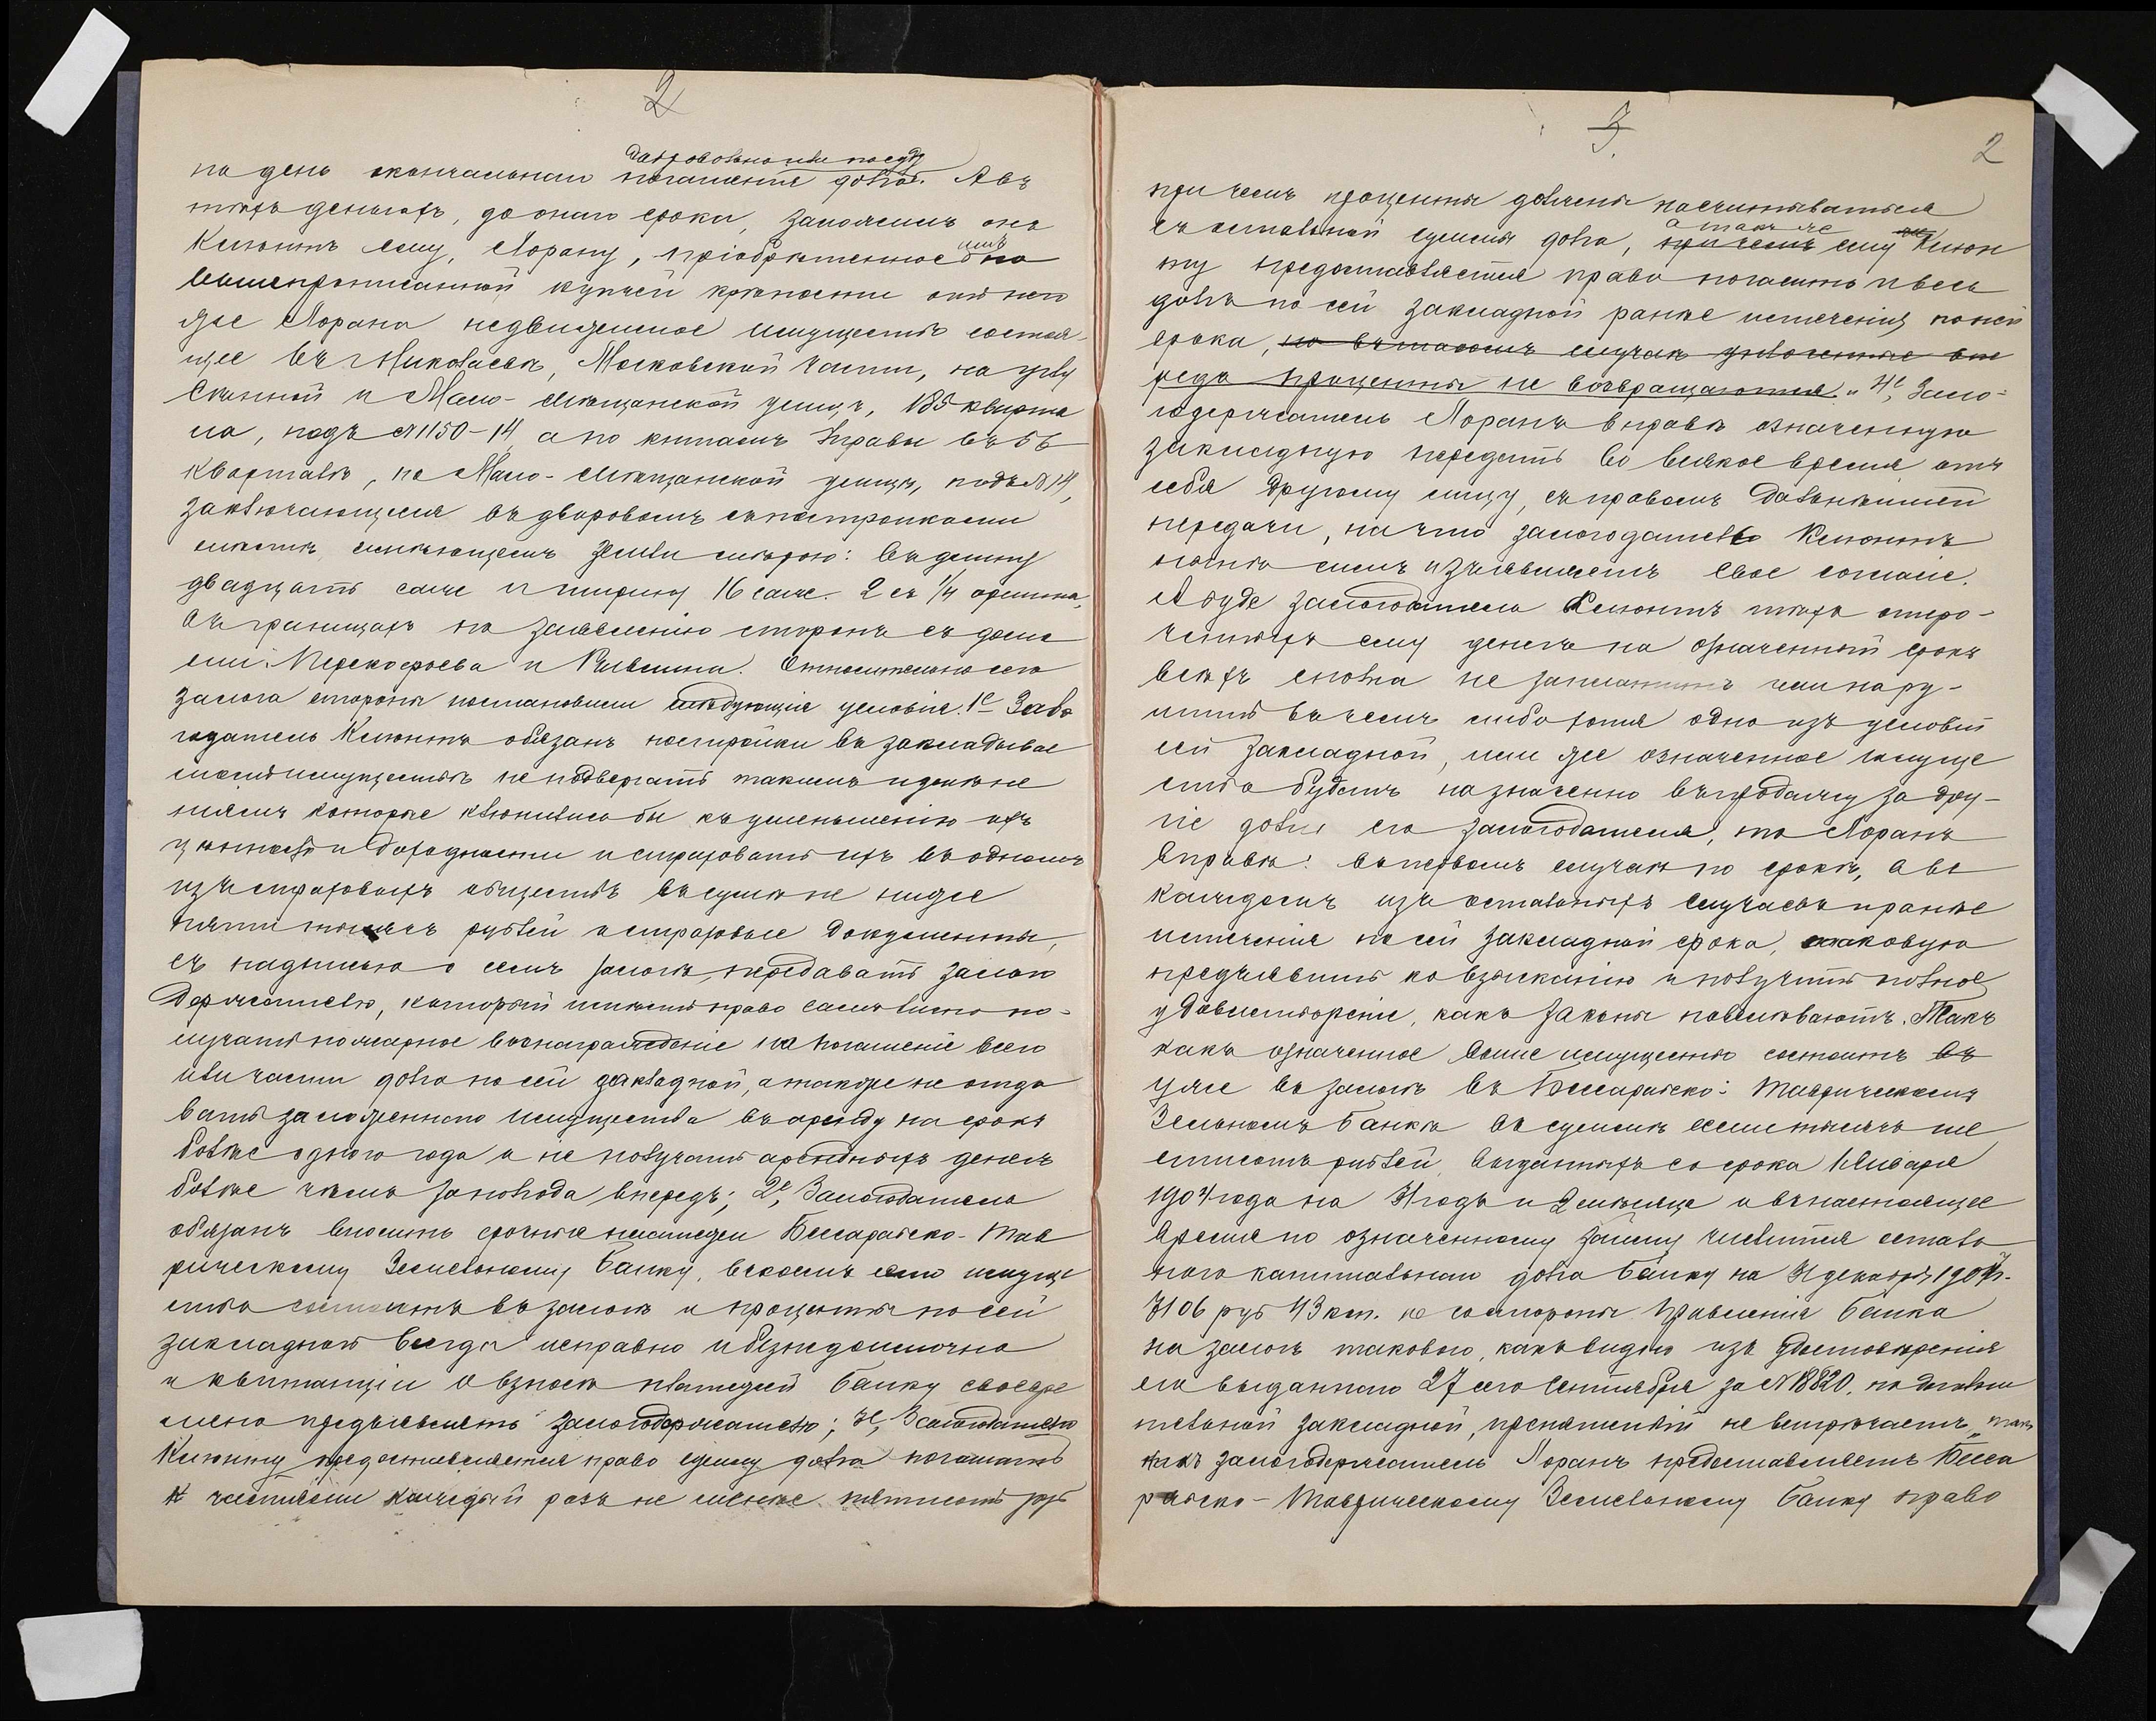 2
добровольно или по суду
на день окончательнаго погашенія долга. А въ
тѣхъ деньгахъ, до онаго срока, заложилъ онъ
Клюнтъ ему, Лорану, пріобрѣтенное имъ по
вышепрописанной купчей крѣпости отъ него
же Лорана недвижимое имущество состоя-
щее въ г. Николаевѣ, Московской части, на углу
Спасской и Мало-Мѣщанской улицъ, 185 кварта
ла, подъ №1150-14, а по книгамъ Управы въ 56
кварталѣ, по Мало-Мѣщанской улицѣ, подъ №14,
заключающееся въ дворовомъ съ постройками
мѣстѣ, имѣющемъ земли мѣрою: въ длину
двадцать саж. и ширину 16 саж. 2 съ 1/4 аршина,
въ границахъ по заявленію сторонъ съ дома
ми: и Рывкина. Относительно сего
залога стороны постановили слѣдующія условія. 1е Зало
годатель Клюнтъ обязанъ постройки въ закладывае
момъ имуществѣ не подвергать такимъ измѣне
ніямъ которые клонились бы къ уменьшенію ихъ
цѣнности и доходности и страховать ихъ въ одномъ
изъ страховыхъ обществъ въ суммѣ не ниже
пяти тысячъ рублей и страховые документы,
съ надписью о семъ залогѣ, передавать залого
держателю, который имѣетъ право самолично по-
лучать пожарное вознагражденіе на погашеніе всего
или части долга по сей закладной, а также не отда
вать заложеннаго имущества въ аренду на срокъ
болѣе одного года и не получать арендныхъ денегъ
болѣе чѣмъ за полгода впередъ; 2е, Залогодатель
обязанъ вносить срочные платежи Бессарабско-Тав
рическому Земельному Банку, въ коемъ сіе имуще
ство состоитъ въ залогѣ и проценты по сей
закладной всегда исправно и безнедоимочно
и квитанціи о взносѣ платежей банку своевре
менно предъявлять залогодержателю; 3е, Залогодателю
Клюнту предоставляется право сумму долга погашать
и частями каждый разъ не менѣе пятисотъ руб
3.
2
при чемъ проценты должны насчитываться
съ остальной суммы долга, а также
причемъ ему же Клюн
ту предоставляется право погасить и весь
долгъ по сей закладной ранѣе истеченія по ней
срока, но въ такомъ случаѣ уплоченные впе
редъ проценты не возвращаются. и 4е, Зало-
годержатель Лоранъ вправѣ означенную
закладную передать во всякое время отъ
себя другому лицу, съ правомъ дальнѣйшей
передачи, на что залогодатель Клюнтъ
симъ изъявляетъ свое согласіе.
А буде залогодатель Клюнтъ тѣхъ
ему денегъ на означенный срокъ
всѣхъ сполна не заплатитъ или нару-
шитъ въ чемъ либо хотя одно изъ условій
сей закладной, или же означенное имуще
ство будетъ назначено въ продажу за дру-
гіе долги его залогодателя, то Лоранъ
вправѣ: въ первомъ случаѣ по срокѣ, а въ
каждомъ изъ остальныхъ случаевъ и ранѣе
истеченія по сей закладной срока, таковую
предъявить ко взысканію и получить полное
удовлетвореніе, какъ законы повелѣваютъ. Такъ
какъ означенное выше имущество состоитъ въ
уже въ залогѣ въ Бессарабско: Таврическомъ
Земельномъ Банкѣ въ суммѣ семи тысячъ ше
стисотъ рублей, выданныхъ со срока 1 Января
1904 года на годъ и 2 мѣсяца и въ настоящее
время по означенному займу числится осталь
ного капитальнаго долга банку на 31 декабря 1907 г.
7106 руб 43 коп. и со стороны Правленія Банка
на залогъ таковаго, какъ видно изъ удостовѣренія
его выданнаго 27 сего Сентября за №18820, по дополни
тельной закладной, препятствій не встрѣчаетъ, такъ
какъ залогодержатель Лоранъ предоставляетъ Бесса
рабско-Таврическому Земельному Банку право